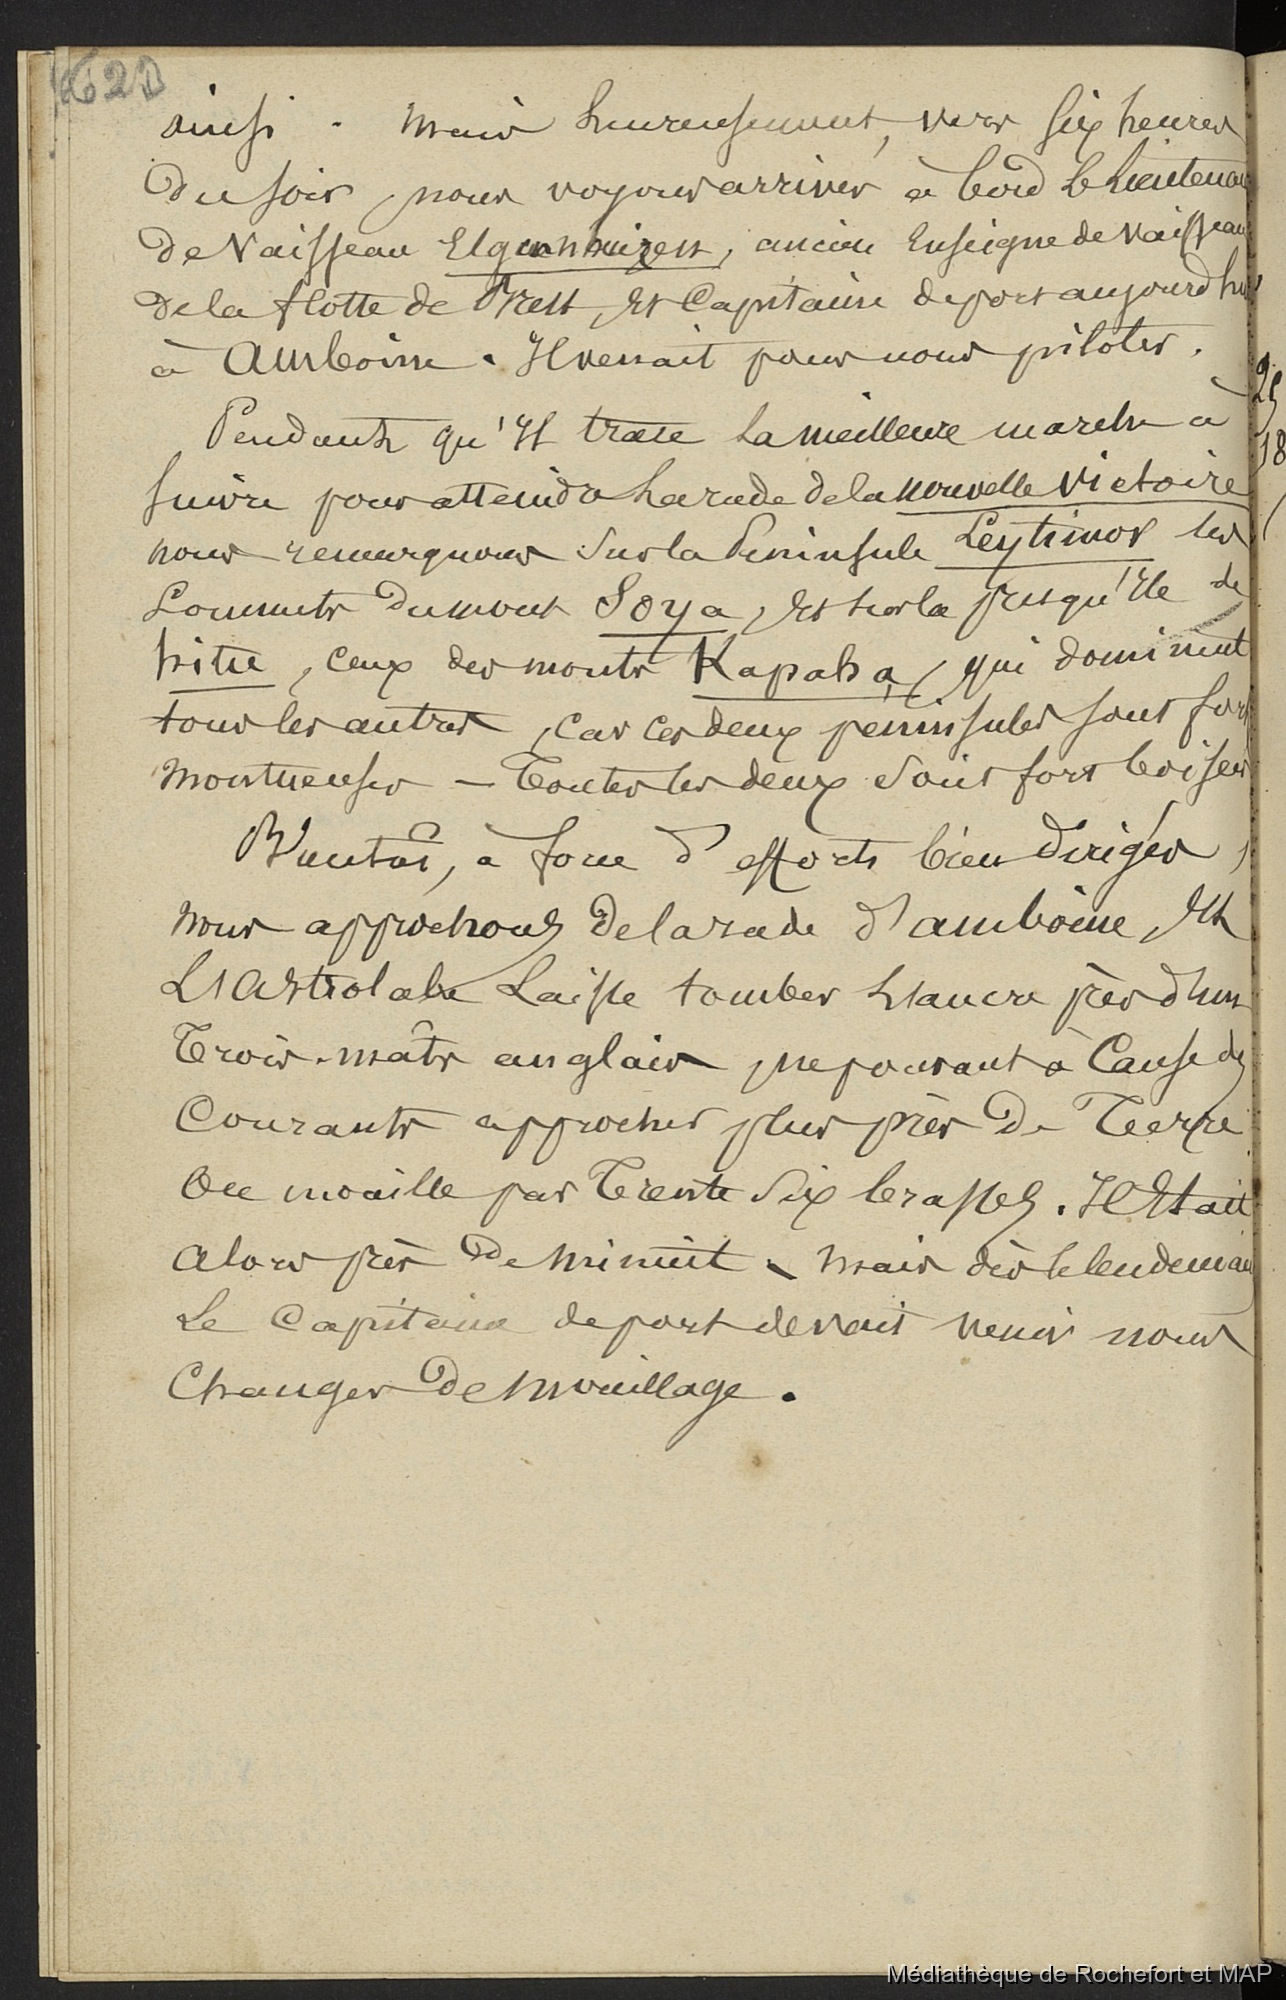 62B
ainsi. Mais heureusement, vers six heures
Du soir, nous voyons arriver à bord le Lieutenant
De Vaisseau Elgenhuizen, ancien Enseigne de Vaisseau
De la flotte de Brest, et Capitaine de port aujourd'hui
à Amboine. Il venait pour nous piloter.
Pendant qu'il trace la meilleure marche à
suivre pour atteindre la rade de la nouvelle Victoire
nous remarquons sur la Peninsule Leytimor les
Sommets du mont Soya, et sur la presqu'île de
hitu, ceux des monts Kapaha, qui dominent
tous les autres, car ces deux péninsules sont fort
Montueuses — Toutes les deux sont fort boisées
Bientôt, à force d'efforts bien dirigés,
nous approchons de la rade d'amboine, et
L'Astrolabe laisse tomber l'ancre près d'un
Trois-mâts anglais, ne pouvant à Cause des
Courants approcher plus près De Terre
On mouille par Trente six brasses. Il était
alors près De Minuit. Mais dès le lendemain
Le Capitaine de port devait venir nous
Changer De Mouillage.
25
18
Médiathèque de Rochefort et MAP